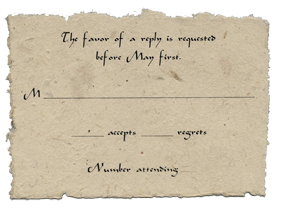 The favor of a reply is requested
before May first.
M
accepts regrets
Number attending